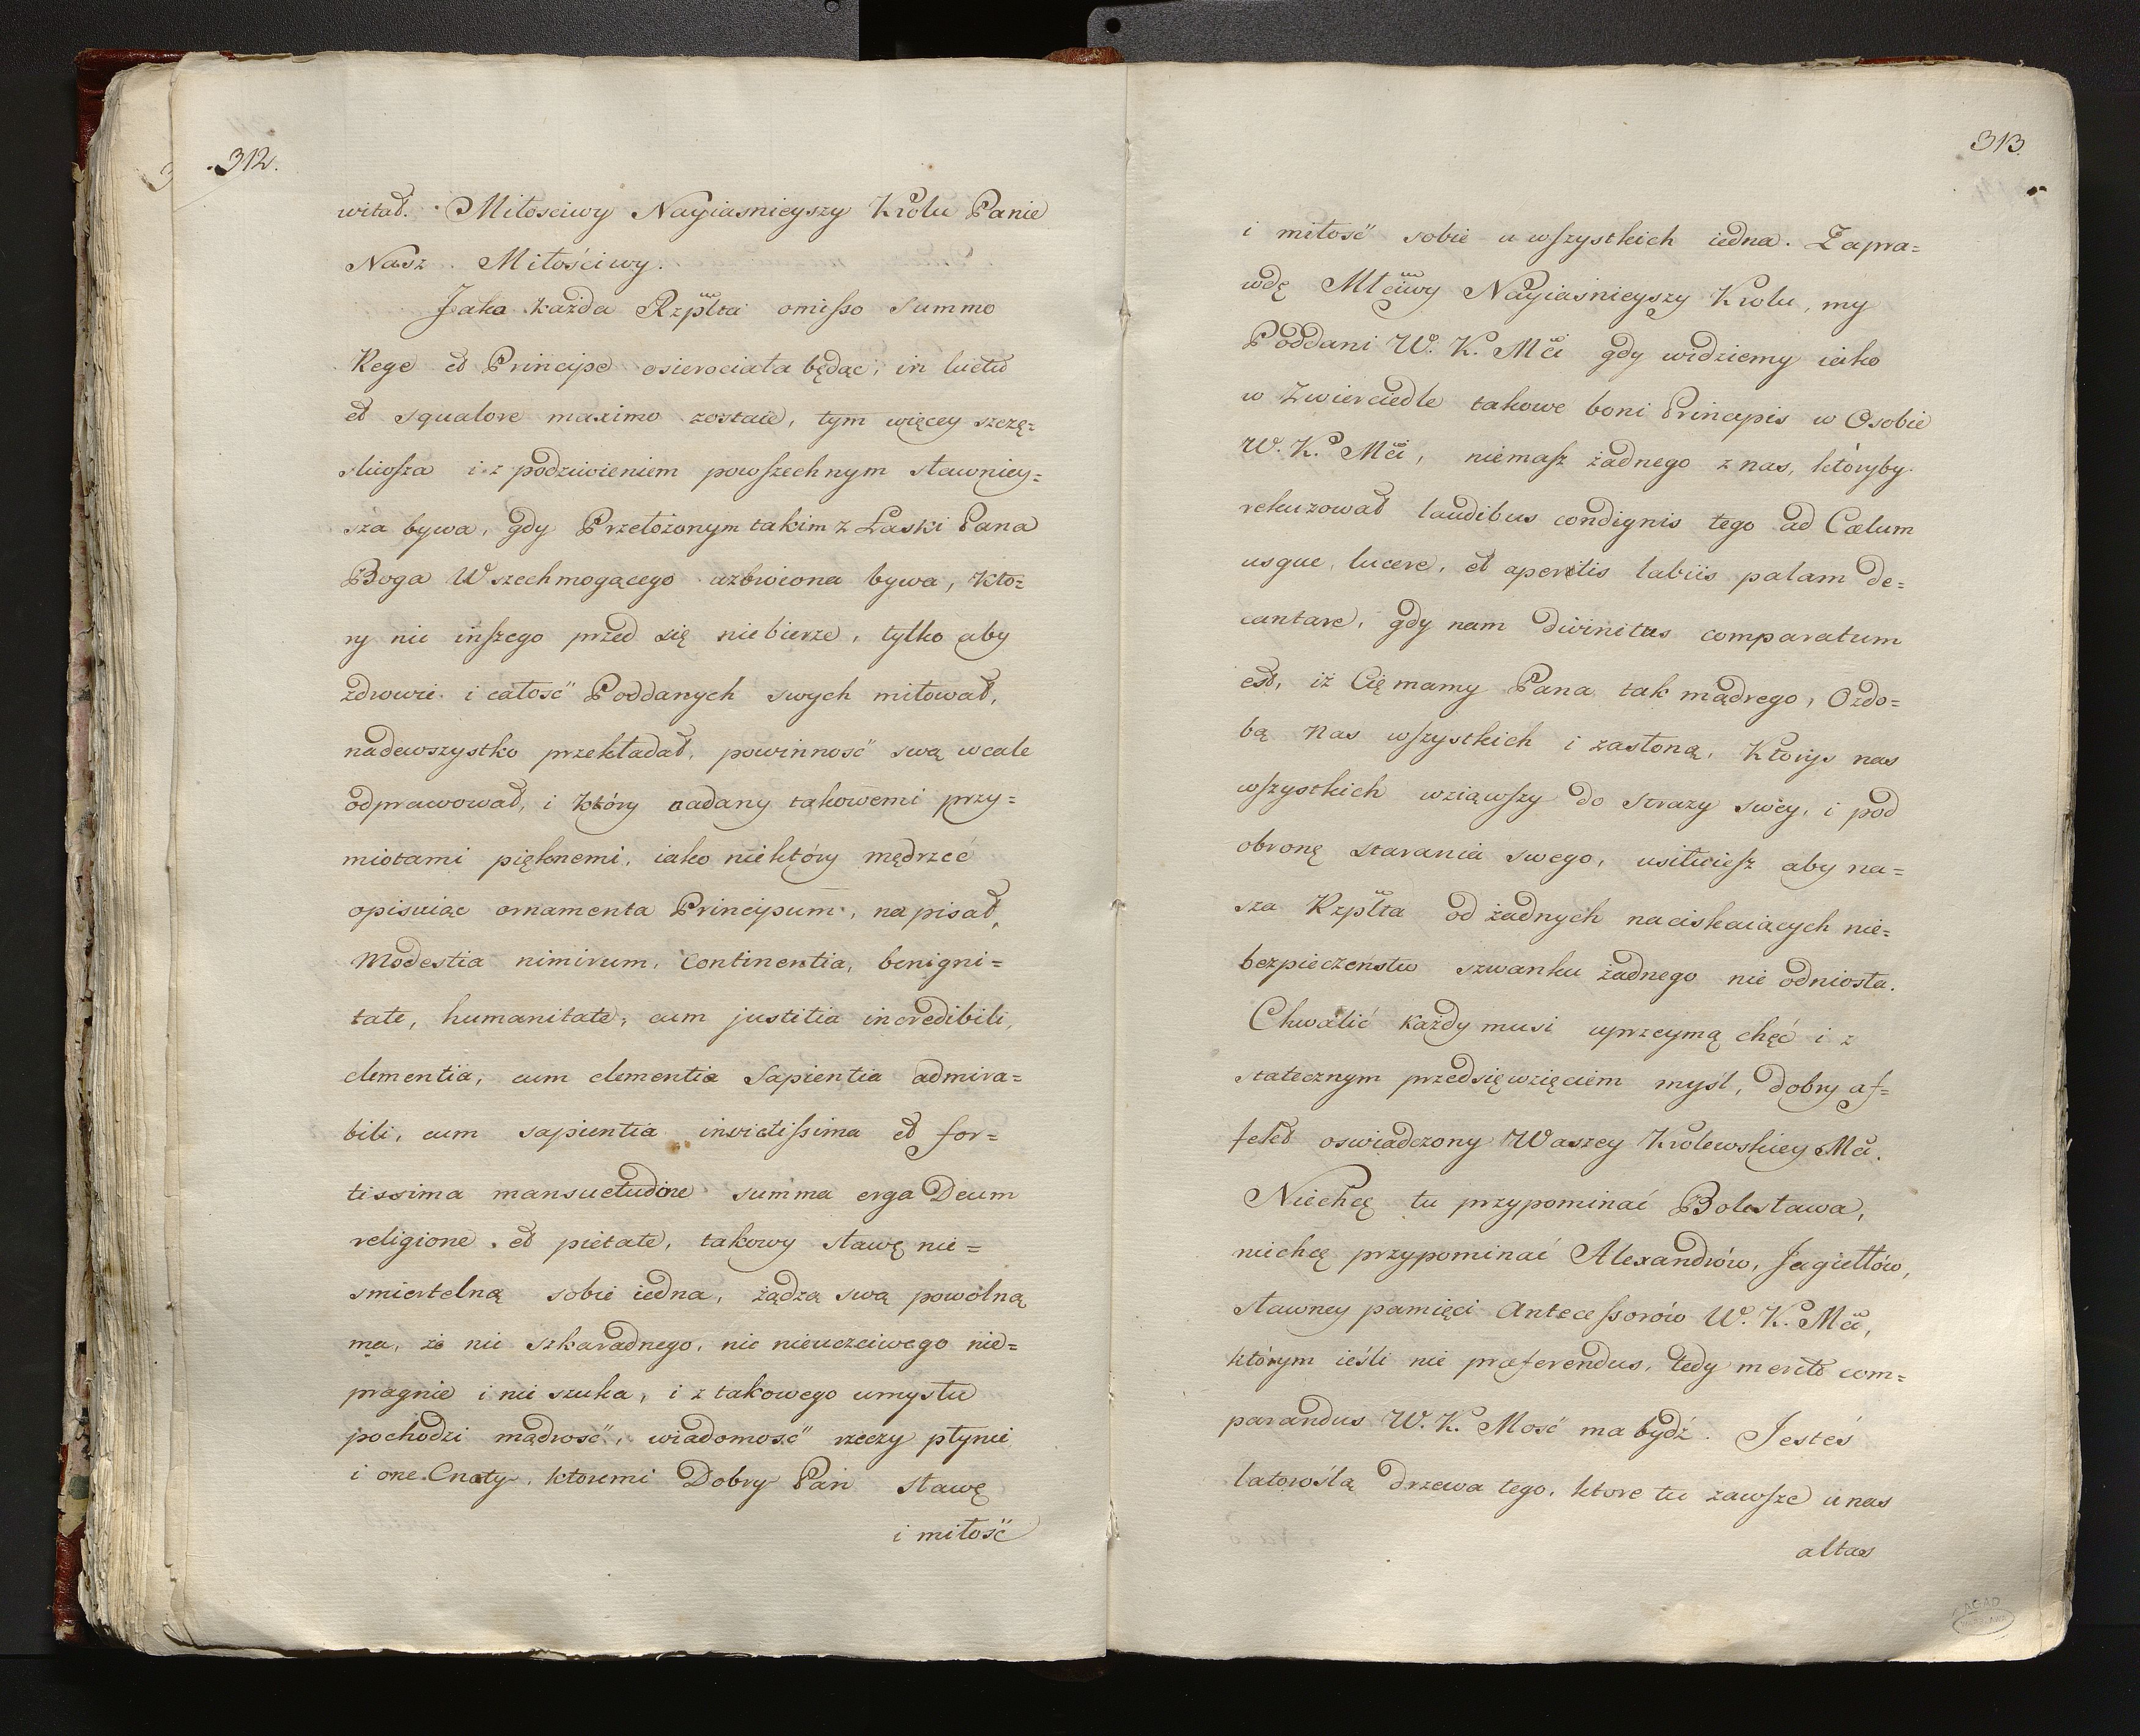 312.
witał. Miłosciwy Nayiasnieyszy Krolu Panie
Nasz Miłościwy.
Jako każda Rzplta omisso summo
Rege et Principe osierociała będąc, in luctu
et squalore maximo zostaie, tym więcey szczę=
sliwsza i z podziwieniem powszechnym sławniey=
sza bywa, gdy Przełożonym takim z Łaski Pana
Boga Wszechmogącego uzbroiona bywa, kto=
ry nic inszego przed się niebierze, tylko aby
zdrowie i całość Poddanych swych miłował,
nadewszystko przekładał, powinność swą wcale
odprawował, i który nadany takowemi przy=
miotami pięknemi, iako niektóry mędrzec
opisuiąc ornamenta Principum, napisał,
Modestia nimirum, continentia, benigni=
tate, humanitate, cum justitia incredibili,
clementia, cum clementia Sapientia admira=
bili, cum sapientia invictissima et for=
tissima mansuetudine summa erga Deum
religione et pietate, takowy sławę nie=
smiertelną sobie iedna, żądzą swą powolną
ma, że nic szkaradnego, nic nieuczciwego nie=
pragnie i nie szuka, i z takowego umysłu
pochodzi mądrość, wiadomość rzeczy płynie
i one Cnoty, ktoremi Dobry Pan sławę
i miłość
313.
i miłość sobie u wszystkich iedna. Zapra=
wdę Młciwy Nayiasnieyszy Krolu, my
Poddani W. K. Mci gdy widziemy iako
w Zwierciedle takowe boni Principis w Osobie
W. K. Mci, niemasz żadnego z nas, któryby
rekuzował laudibus condignis tego ad Cælum
usque lucere, et apertis labiis palam de=
cantare, gdy nam divinitus comparatum
est, iż Cię mamy Pana tak mądrego, Ozdo=
bą nas wszystkich i zasłoną, Któryś nas
wszystkich wziąwszy do straży swey, i pod
obronę starania swego, usiłuiesz aby na=
sza Rzplta od żadnych naciskaiących nie=
bezpieczeństw szwanku żadnego nie odniosła.
Chwalić każdy musi uprzeymą chęć i z
statecznym przedsięwzięciem myśl, dobry af=
fekt oswiadczony Waszey Krolewskiey Mci.
Niechcę tu przypominać Bolesława,
niechcę przypominać Alexandrów, Jagiełłów,
sławney pamięci Antecessorów W. K. Mci,
którym ieśli nie præferendus, tedy merito com=
parandus W. K. Mość ma bydź. Jesteś
latoroślą drzewa tego, ktore tu zawsze u nas
altas
AGAD
WARSZAWA